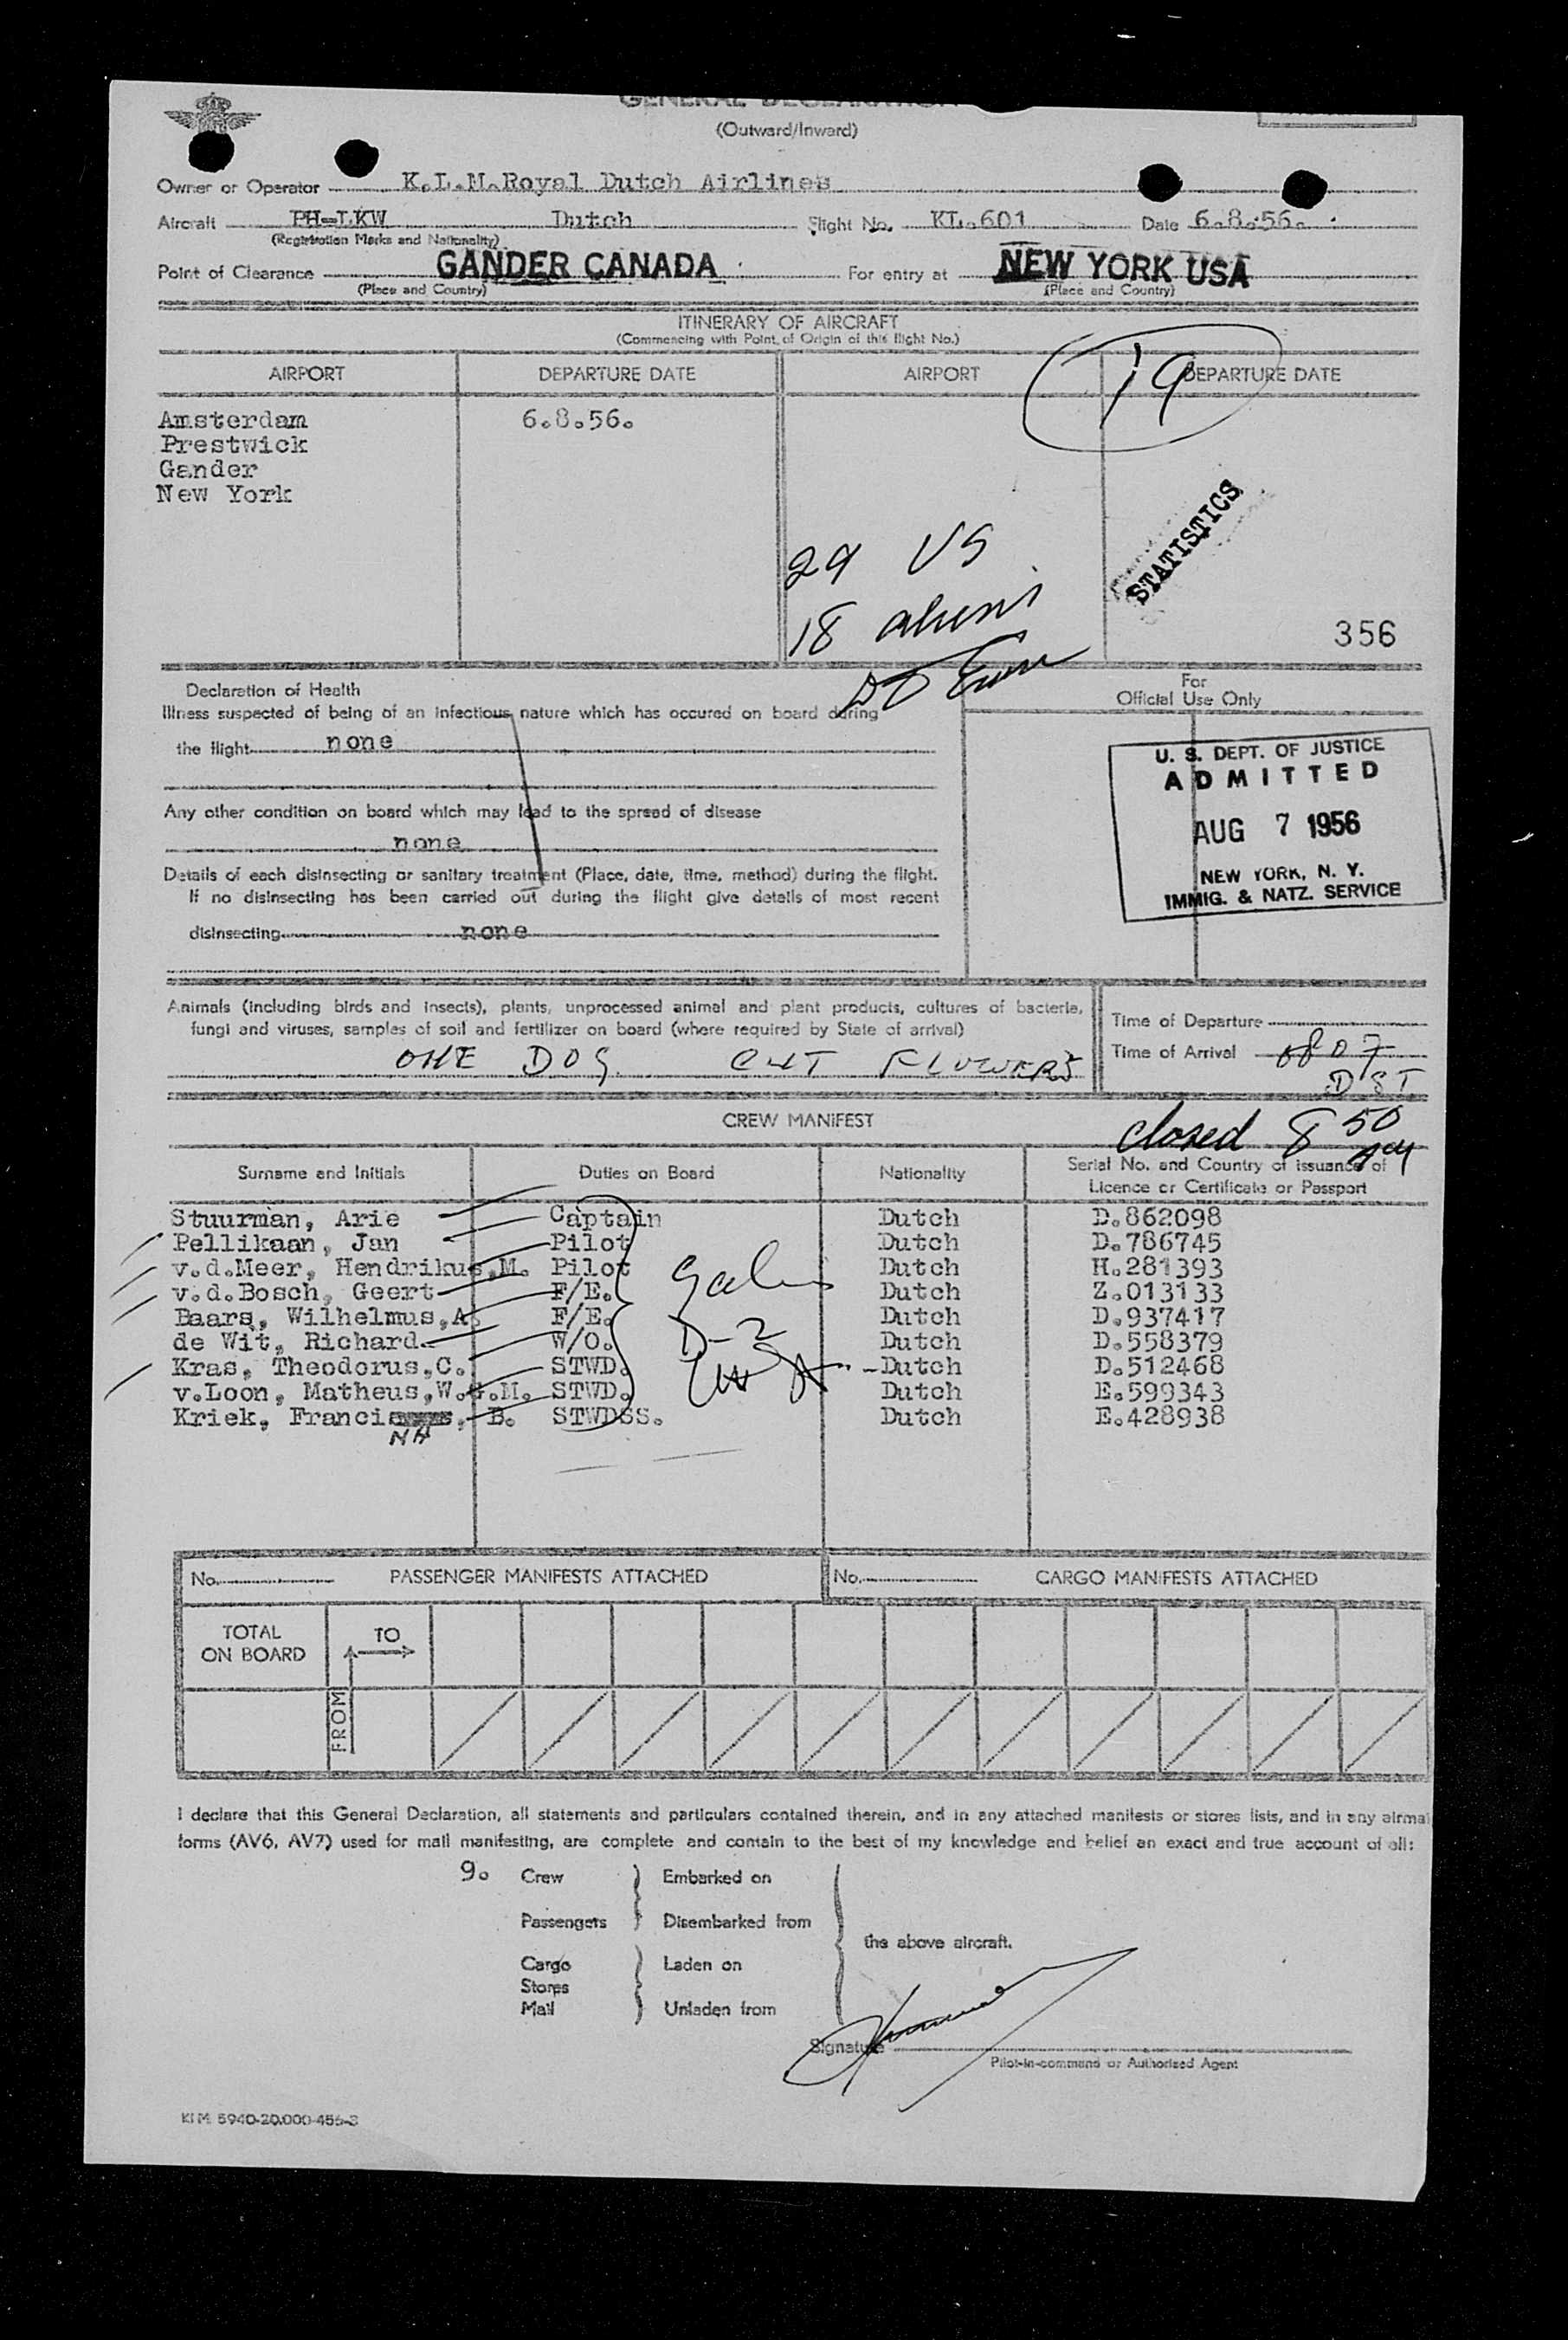 GENERAL DECLARATION
(Outward/Inward)
Owner or Operator K.L.M. Royal Dutch Airlines
Aircraft PH-LKW Dutch Flight No. KL.601 Date 6.8.56.
(Registration Marks and Nationality)
Point of Clearance GANDER CANADA For entry at NEW YORK USA
(Place and Country) (Place and Country)
ITINERARY OF AIRCRAFT
(Commencing with Point of Origin of this flight No.)
19
AIRPORT DEPARTURE DATE AIRPORT DEPARTURE DATE
Amsterdam 6.8.56.
Prestwick
Gander
New York
STATISTICS
29 US
18 aliens
356
Declaration of Health
Illness suspected of being of an infectious nature which has occured on board during
the flight none
Any other condition on board which may lead to the spread of disease
none
Details of each disinsecting or sanitary treatment (Place, date, time, method) during the flight.
If no disinsecting has been carried out during the flight give details of most recent
disinsecting none
For
Official Use Only
U. S. DEPT. OF JUSTICE
ADMITTED
AUG 7 1956
NEW YORK, N. Y.
IMMIG. & NATZ. SERVICE
Animals (including birds and insects), plants, unprocessed animal and plant products, cultures of bacteria,
fungi and viruses, samples of soil and fertilizer on board (where required by State of arrival)
ONE DOG CUT FLOWERS
Time of Departure
Time of Arrival 0807
DST
closed 8 50 AM
CREW MANIFEST
Surname and Initials Duties on Board Nationality Serial No. and Country of issuance of
Licence or Certificate or Passport
Stuurman, Arie Captain Dutch D.862098
Pellikaan, Jan Pilot Dutch D.786745
v.d.Meer, Hendrikus,M. Pilot Dutch H.281393
v.d.Bosch, Geert F/E. Dutch Z.013133
Baars, Wilhelmus,A. F/E. Dutch D.937417
de Wit, Richard. W/O. Dutch D.558379
Kras, Theodorus,C. STWD. Dutch D.512468
v.Loon, Matheus,W.G.M. STWD. Dutch E.599343
Kriek, Franci , B. STWDSS. Dutch E.428938
NA
D-2
No. PASSENGER MANIFESTS ATTACHED No. CARGO MANIFESTS ATTACHED
TOTAL
ON BOARD
TO
FROM
I declare that this General Declaration, all statements and particulars contained therein, and in any attached manifests or stores lists, and in any airmai
forms (AV6, AV7) used for mail manifesting, are complete and contain to the best of my knowledge and belief an exact and true account of all:
9. Crew Embarked on
Passengers Disembarked from
the above aircraft.
Cargo Laden on
Stores
Mail Unladen from
Signature
Pilot-in-command or Authorised Agent
KLM 5940-20.000-456-3